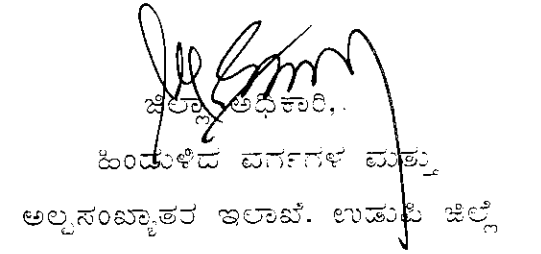 ಜಿಲ್ಲಾ ಅಧಿಕಾರಿ,
ಹಿಂದುಳಿದ ವರ್ಗಗಳ ಮತ್ತು
ಅಲ್ಪಸಂಖ್ಯಾತರ ಇಲಾಖೆ. ಉಡುಪಿ ಜಿಲ್ಲೆ